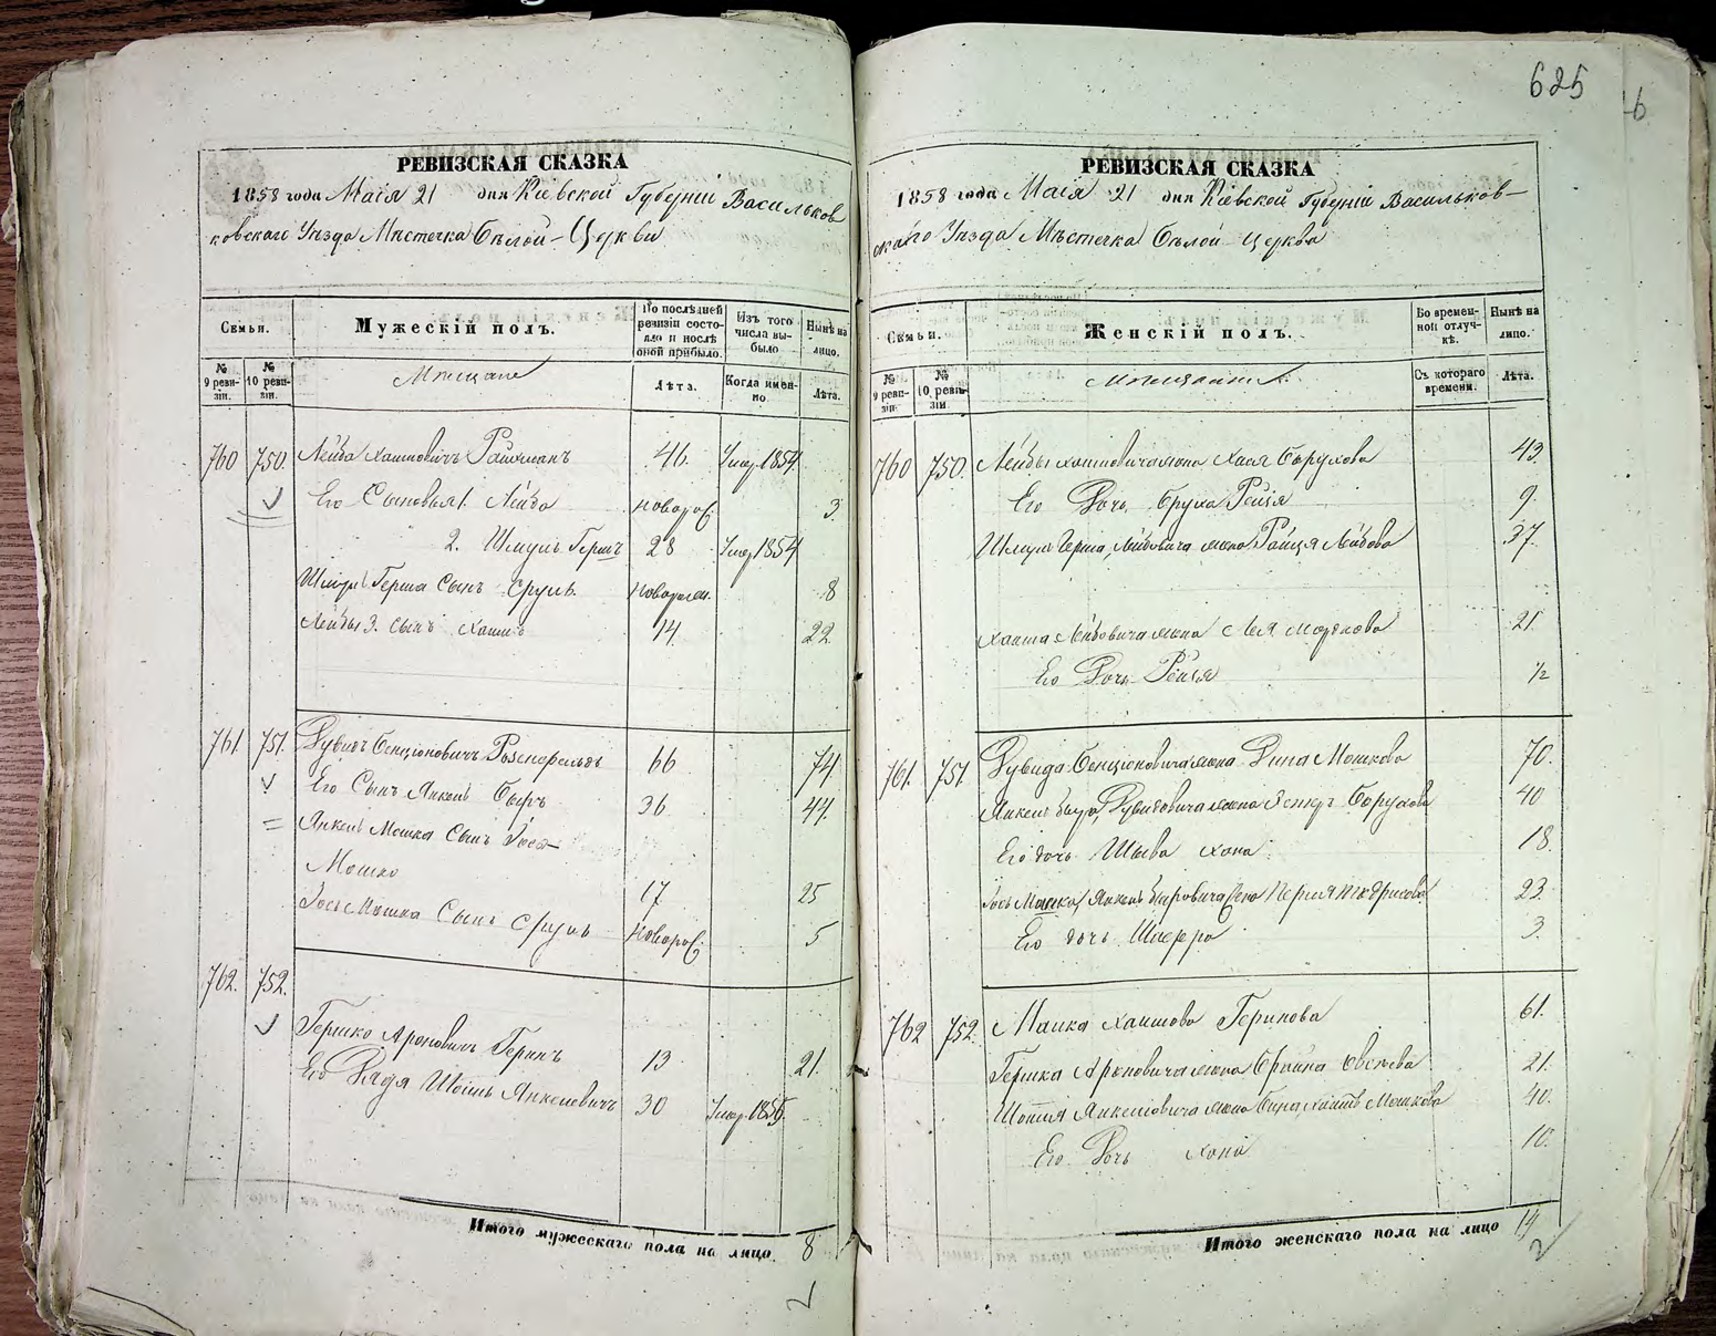 625
РЕВИЗСКАЯ СКАЗКА
1858 года Маія 21 дня Кіевской Губерніи Васильков
ковскаго Уѣзда Мѣстечка Бѣлой-Церкви
Семьи.
Мужескій полъ.
По послѣдней ревизіи состояло и послѣ оной прибыло.
Изъ того числа выбыло
Нынѣ на лицо.
№ 9 ревизіи.
№ 10 ревизіи.
Мѣщане
Лѣта.
Когда именно.
Лѣта.
760 750. Лейба Хаимовичъ Райхманъ 46. Умер. 1854
Его Сыновья 1. Лейба новорож. 3.
2. Шмуль Гершъ 28 Умер. 1854
Шмуль Герша Сынъ Сруль новорожд. 8
Лейбы 3. сынъ Хаимъ 14. 22
761. 751. Дувидъ Бенціоновичъ Розенфельдъ 66 74
Его Сынъ Янкель Беръ 36 44.
Янкель Мошка Сынъ Іось-
Мошко 17 25
Іось Мошка Сынъ Сруль новорож. 5
762. 752.
Гершко Ароновичъ Геринъ 13 21.
Его Дядя Шоилъ Янкелевичъ 30 Умер. 1855
Итого мужескаго пола на лицо 8
РЕВИЗСКАЯ СКАЗКА
1858 года Маія 21 дня Кіевской Губерніи Васильков-
скаго Уѣзда Мѣстечка Бѣлой Церкви
Семьи.
Женскій полъ.
Во временной отлучкѣ.
Нынѣ на лицо.
№ 9 ревизіи
№ 10 ревизіи
Съ котораго времени.
Лѣта.
760 750. Лейбы Хаимовича жена Хая Борухова 43.
Его Дочь Фрума Рейзя 9.
Шмуль Герша Лейбовича жена Райзя Лейбова 37.
Хаима Лейбовича жена Лея Мордкова 21
Его Дочь Рейзя 1/2
761. 751 Дувида Бенціоновича жена Дина Мошкова 70.
Янкель Бера Дувидовича жена Эстер Борухова 40
Его дочь Шыва Хона 18.
Іось Мошка Янкель Беровича жена Перля 23.
Его дочь 3.
762 752. Малка Хаимова Геринова 61.
Гершка Ароновича жена Фрайна 21.
Шоиля Янкелевича жена Мошкова 40.
Его Дочь Хона 10.
Итого женскаго пола на лицо 14